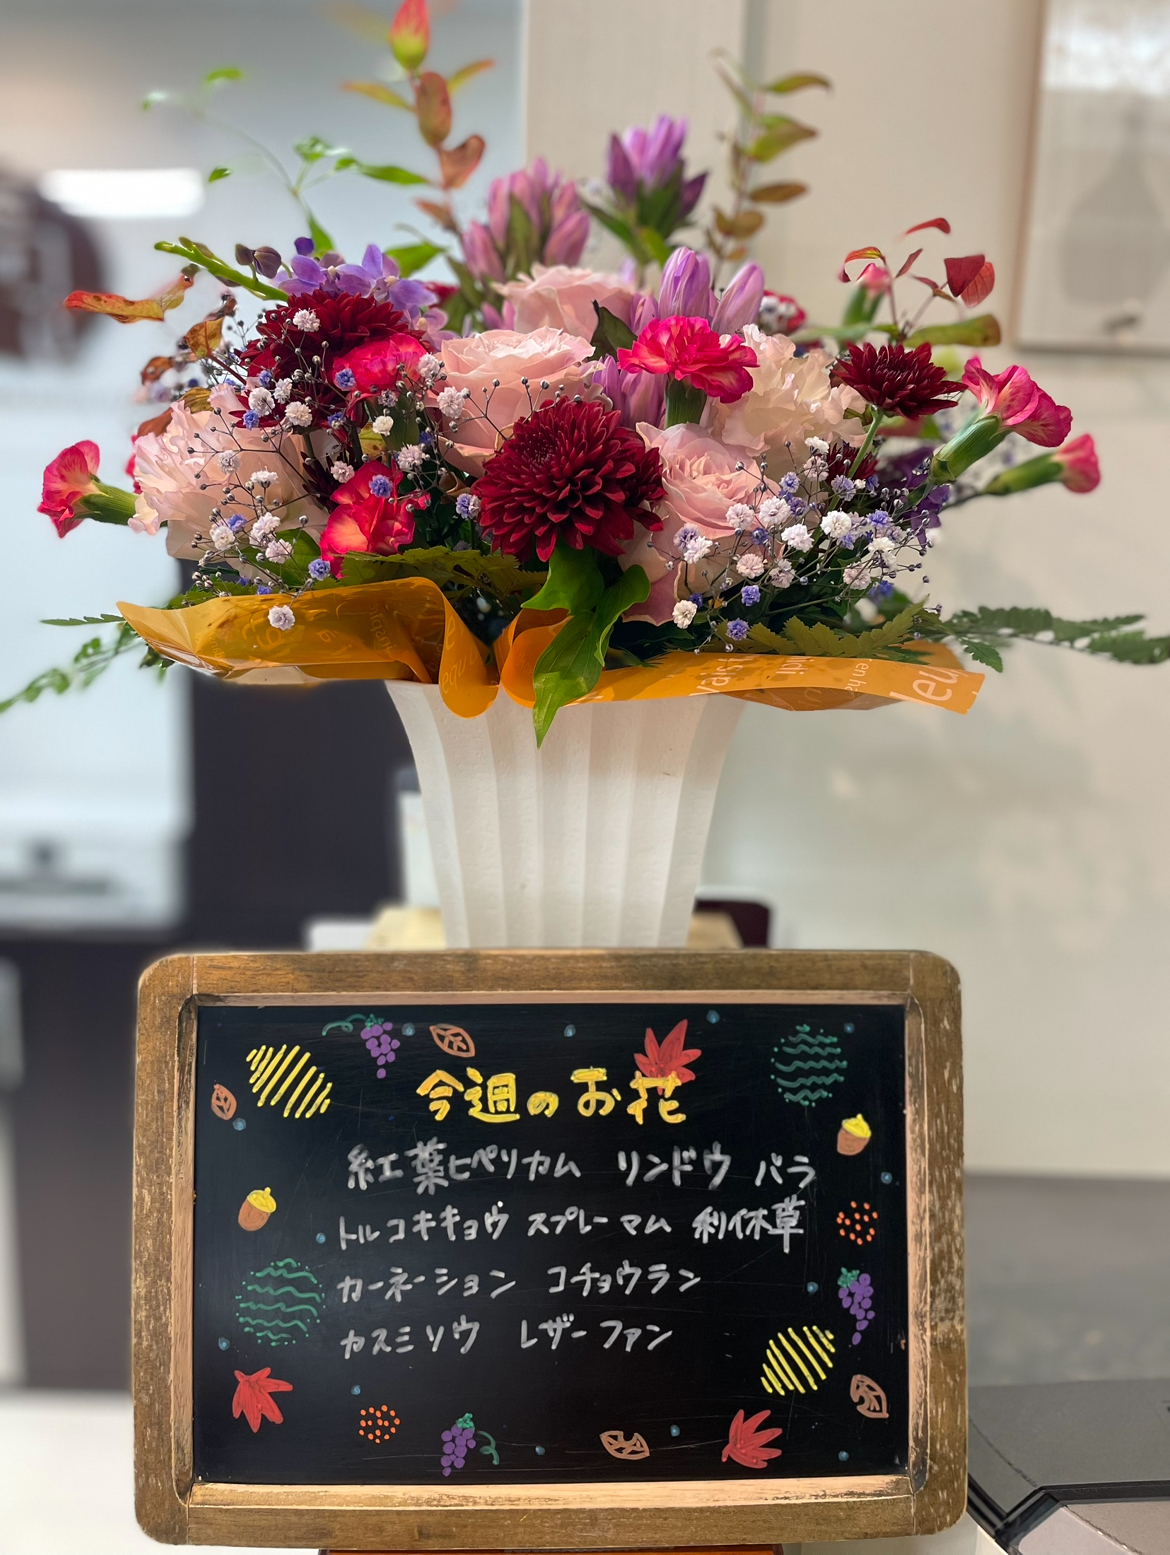 今週のお花
紅葉ヒペリカム リンドウ バラ
トルコキキョウ スプレーマム 利休草
カーネーション コチョウラン
カスミソウ レザーファン